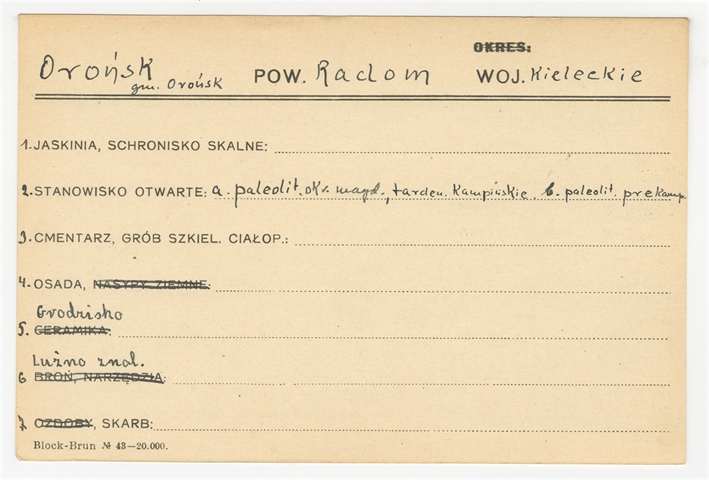 OKRES:
Orońsk POW. Radom WOJ. Kieleckie
gm. Orońsk
1. JASKINIA, SCHRONISKO SKALNE:
2. STANOWISKO OTWARTE: a. paleolit. okr. magd., tarden. Kampińskie. b. paleolit. prekamp.
3. CMENTARZ, GRÓB SZKIEL. CIAŁOP.:
4. OSADA, NASYPY ZIEMNE:
Grodzisko
5. CERAMIKA:
Luźno znal.
6 BROŃ, NARZĘDZIA:
7 OZDOBY, SKARB:
Block-Brun № 43—20.000.